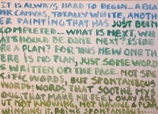 IT IS ALWAYS HARD TO BEGIN... A BLA
NK CANVAS, TOTALLY WHITE, ANOTH
ER PAINTING THAT HAS JUST BEEN
COMPLETED... WHAT IS NEXT, WHAT
SHOULD BE DONE NEXT? IS THE
RE A PLAN? FOR THIS NEW ONE THE
RE IS NO PLAN, JUST SOME WORDS
WRITTEN ON THE PAGE. NOT SPE
CIFIC WORDS BUT SPONTANEOUS
WORDS; WORDS THAT SOOTHE MY
SOUL THAT MAKE ME FEEL OKAY AB
OUT NOT HAVING A PLAN